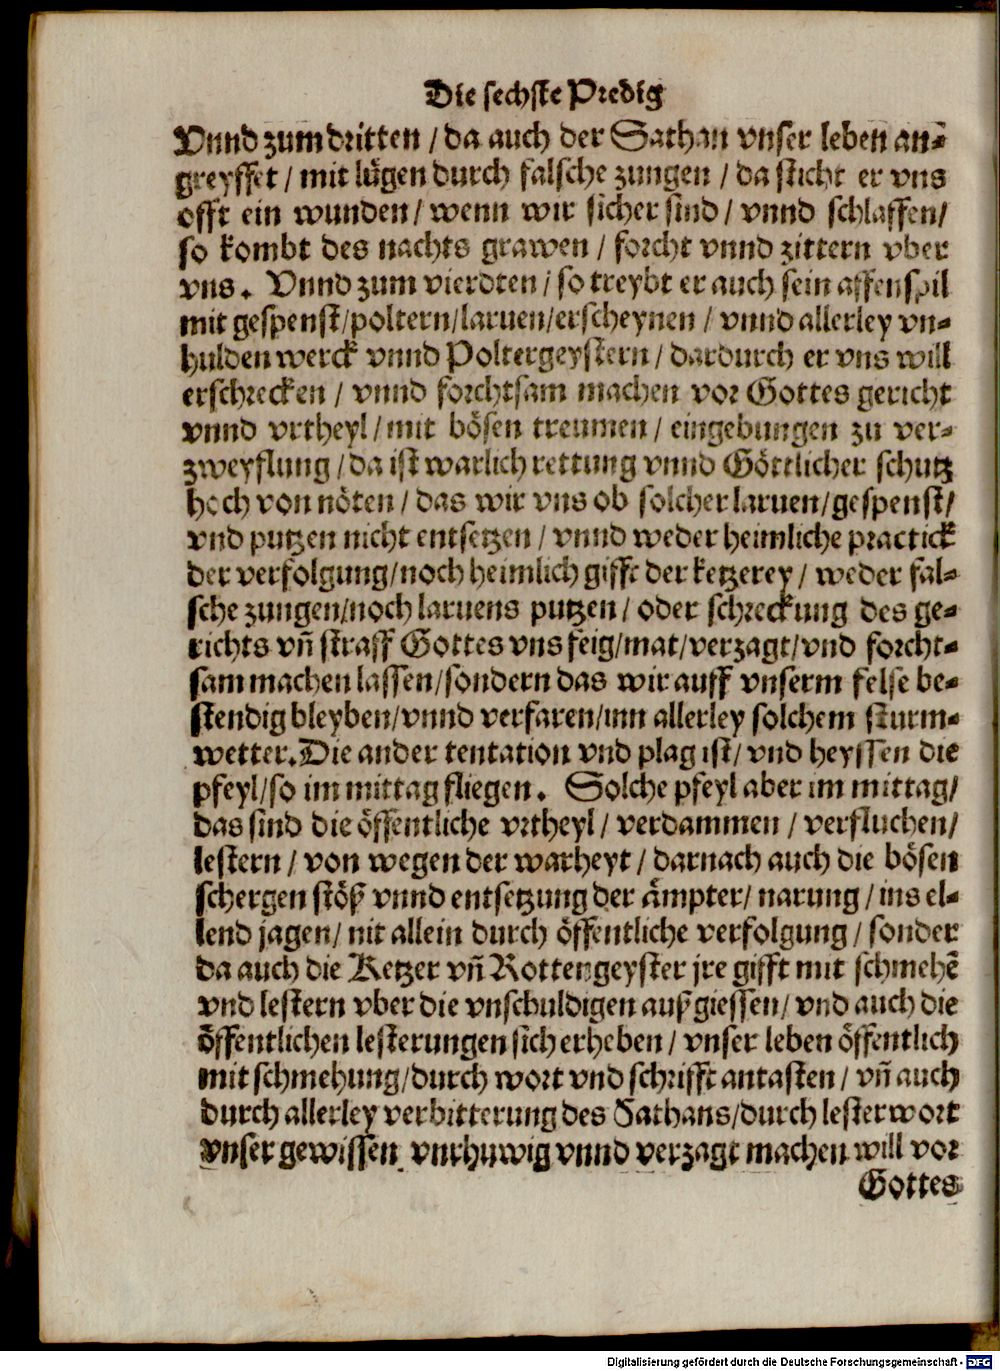 Die sechste Predig
Vnnd zum dritten / da auch der Sathan vnser leben an=
greyffet / mit lügen durch falsche zungen / da sticht er vns
offt ein wunden / wenn wir sicher sind / vnnd schlaffen /
so kombt des nachts grawen / forcht vnnd zittern vber
vns. Vnnd zum vierdten / so treybt er auch sein affenspil
mit gespenst/poltern/laruen/erscheynen / vnnd allerley vn=
hulden werck vnnd Poltergeystern / dardurch er vns will
erschrecken / vnnd forchtsam machen vor Gottes gericht
vnnd vrtheyl / mit bösen treumen / eingebungen zu ver=
zweyflung / da ist warlich rettung vnnd Göttlicher schutz
hoch von nöten / das wir vns ob solcher laruen/gespenst/
vnd putzen nicht entsetzen / vnnd weder heimliche practick
der verfolgung/noch heimlich gifft der ketzerey / weder fal=
sche zungen/noch laruens putzen / oder schreckung des ge=
richts vn̄ straff Gottes vns feig/mat/verzagt/vnd forcht=
sam machen lassen/sondern das wir auff vnserm felse be=
stendig bleyben/vnnd verfaren/inn allerley solchem sturm=
wetter. Die ander tentation vnd plag ist/ vnd heyssen die
pfeyl/so im mittag fliegen. Solche pfeyl aber im mittag/
das sind die öffentliche vrtheyl / verdammen / verfluchen/
lestern / von wegen der warheyt / darnach auch die bösen
schergen stöß vnnd entsetzung der ämpter/ narung / ins el=
lend jagen/ nit allein durch öffentliche verfolgung / sonder
da auch die Ketzer vn̄ Rottengeyster jre gifft mit schmehē
vnd lestern vber die vnschuldigen außgiessen/ vnd auch die
öffentlichen lesterungen sich erheben / vnser leben öffentlich
mit schmehung/durch wort vnd schrifft antasten / vn̄ auch
durch allerley verbitterung des Sathans/durch lesterwort
vnser gewissen vnrhuwig vnnd verzagt machen will vor
Gottes
Digitalisierung gefördert durch die Deutsche Forschungsgemeinschaft - DFG